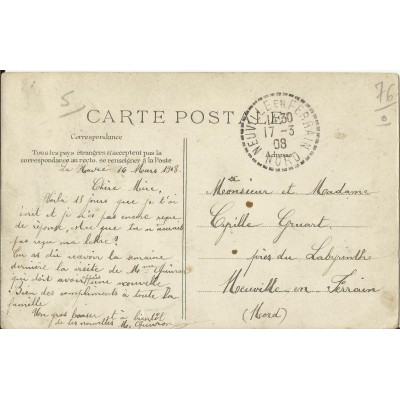 5
76
CARTE POSTALE
Correspondance
Tous les pays étrangers n'acceptent pas la
correspondance au recto. se renseigner à la Poste
Le Havre 16 Mars 1908.
Chère Mère,
Voilà 15 jours que je t'ai
écrit et je n'ai pas encore reçu
de réponse, est ce que tu n'aurais
pas reçu ma lettre?
Tu as dû recevoir la semaine
dernière la visite de Mme
qui doit avoir nouvelle
Bien des compliments à toute la
famille
Un gros baiser et à bientôt
de tes nouvelles M.
NEUVILLE EN FERRAIN
17 - 3
08
NORD
Adresse
Monsieur et Madame
Cyrille
près du Labyrinthe
Neuville en Ferrain
(Nord)